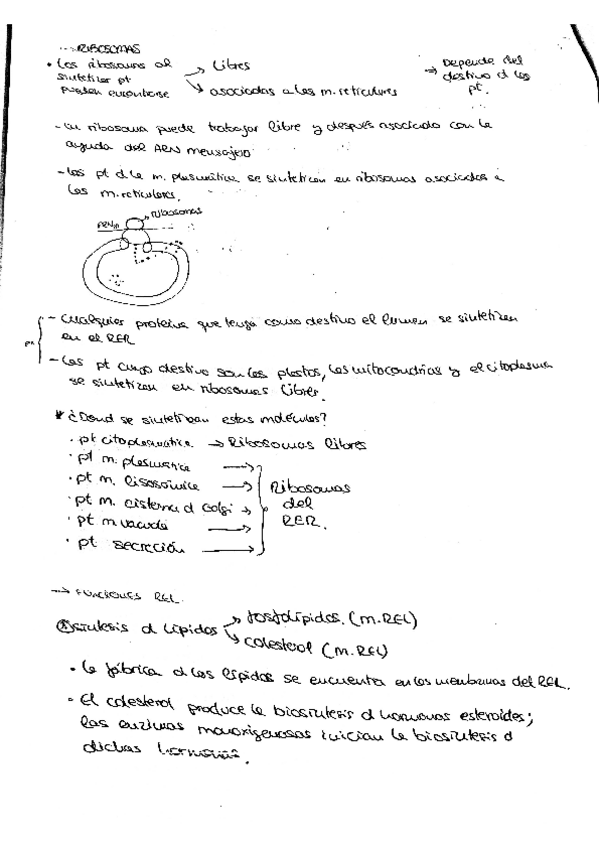 → RIBOSOMAS
• Los ribosomas al sintetizar pt pueden encontrarse
→ Libres
→ asociados a las m. reticulares
→ Depende del destino d las pt.
- un ribosoma puede trabajar libre y después asociado con la
ayuda del ARN mensajero
- las pt d la m. plasmática se sintetizan en ribosomas asociados a
las m. reticulares.
ribosomas
ARNm
- Cualquier proteína que tenga como destino el lumen se sintetizan
en el RER
- Las pt cuyo destino son los plastos, las mitocondrias y el citoplasma
se sintetizan en ribosomas libres.
* ¿Dond se sintetizan estas moléculas?
· pt citoplasmática → Ribosomas libres
· pt m. plasmática →
· pt m. lisosómica →
· pt m. cisterna d Golgi →
· pt m vacuola →
· pt secreción →
Ribosomas
del
RER.
→ FUNCIONES REL.
síntesis d lípidos → fosfolípidos. (m. REL)
→ colesterol (m. REL)
• la fábrica d los lípidos se encuentra en las membranas del REL.
• El colesterol produce la biosíntesis d hormonas esteroides;
las enzimas inicían la biosíntesis d
dichas hormonas.